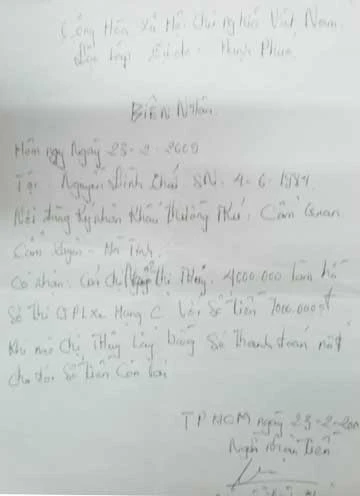 Cộng Hòa Xã Hội Chủ Nghĩa Việt Nam
Độc lập Phúc
BIÊN NHẬN
Hôm nay Ngày 23-2-2009
Tôi: Nguyễn Đình SN. 4-6-1984
Nơi đăng ký nhân Khẩu Thường trú: Cẩm Quan
Cẩm Xuyên - Hà Tĩnh
Có nhận Của chị Thị Thủy. 4000.000 làm hồ
Sơ thi GPLX Hạng C Với số tiền 7000.000đ
Khi mà chị Thủy Lấy bằng Sẽ thanh toán nốt
cho tôi Số tiền Còn lại
TPHCM ngày 23-2-200
Người nhận Tiền